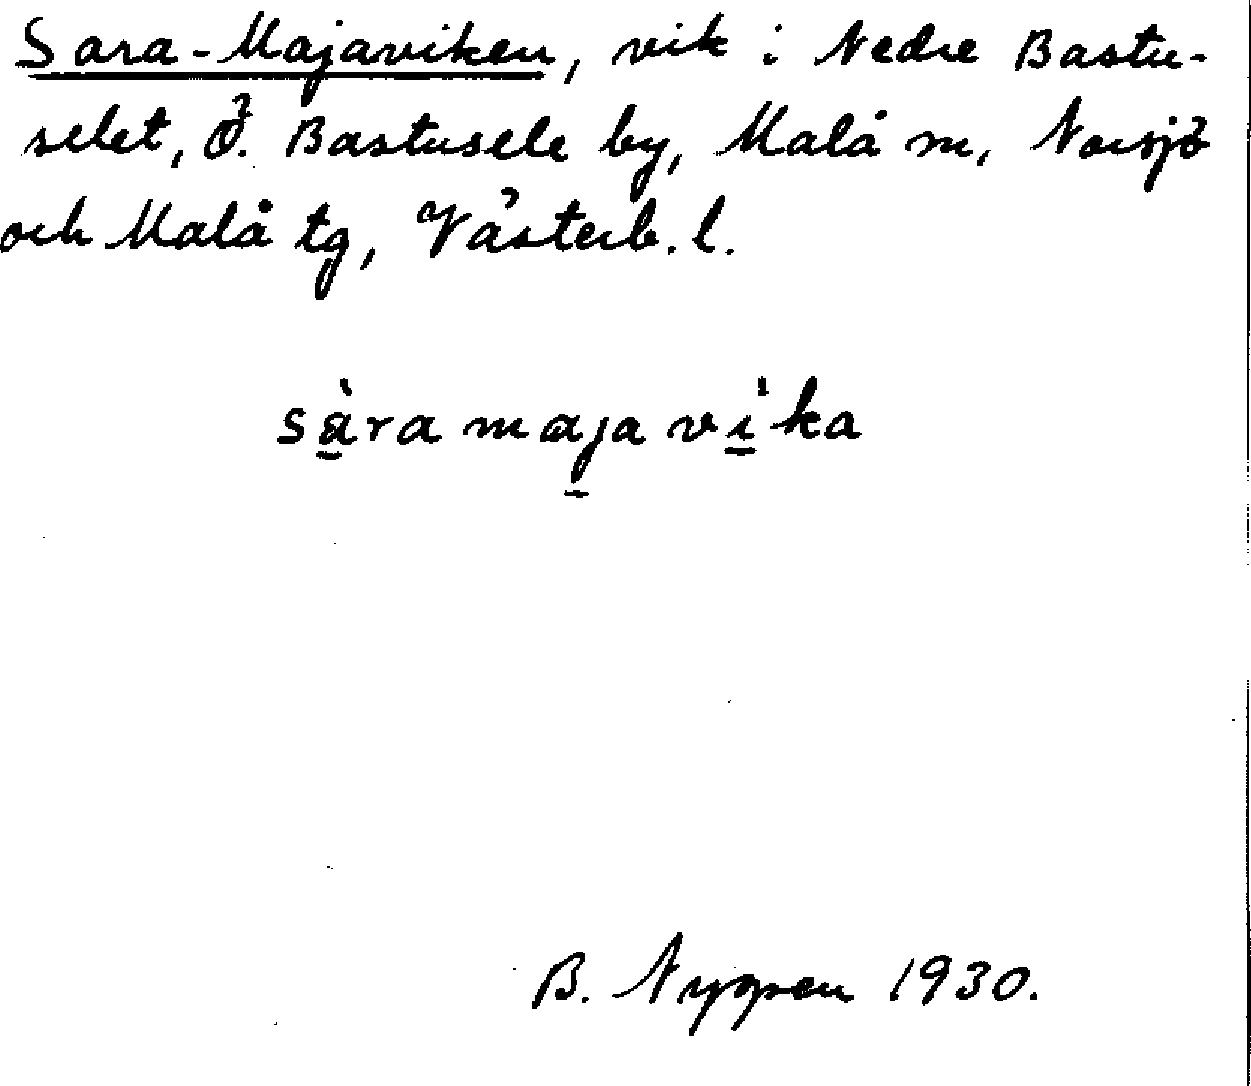 Sara-Majaviken, vik i Nedre Bastu-
selet, Ö. Bastusele by, Malå sn, Norsjö
och Malå tg, Västerb. l.
sàra maja vika
B. Nygren 1930.